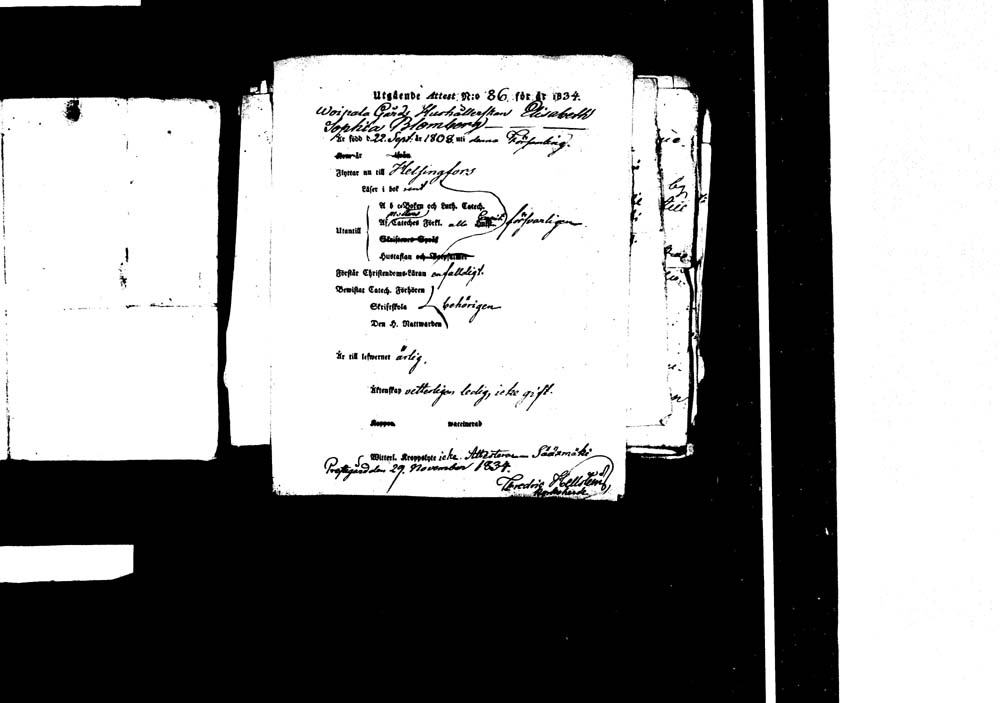 Utgående Attest N:o 86 för år 1834.
Woipala Gårds Hushållerskan Elisabeth
Sophia Blomberg
Är född d. 22 Sept. år 1808 uti denna Församling.
Kom år ifrån
Flyttar nu till Helsingfors
Läser i bok rent
A b c-Boken och Luth. Catech.
Af Cateches Förkl. alla försvarligen
Utantill
Skriftenes Språk
Hustaflan och
Förstår Christendoms-Läran enfaldigt.
Bewistat Catech. Förhören
Skriftskola behörigen
Den H. Nattwarden
Är till lefwernet ärlig.
Äktenskap vetterligen ledig, icke gift.
Koppor vaccinerad
Witterl. Kroppslyte icke. Attesteras Sääxmäki
Prestgård den 29. November 1834.
Fredric Hellström,
Kyrkoherde